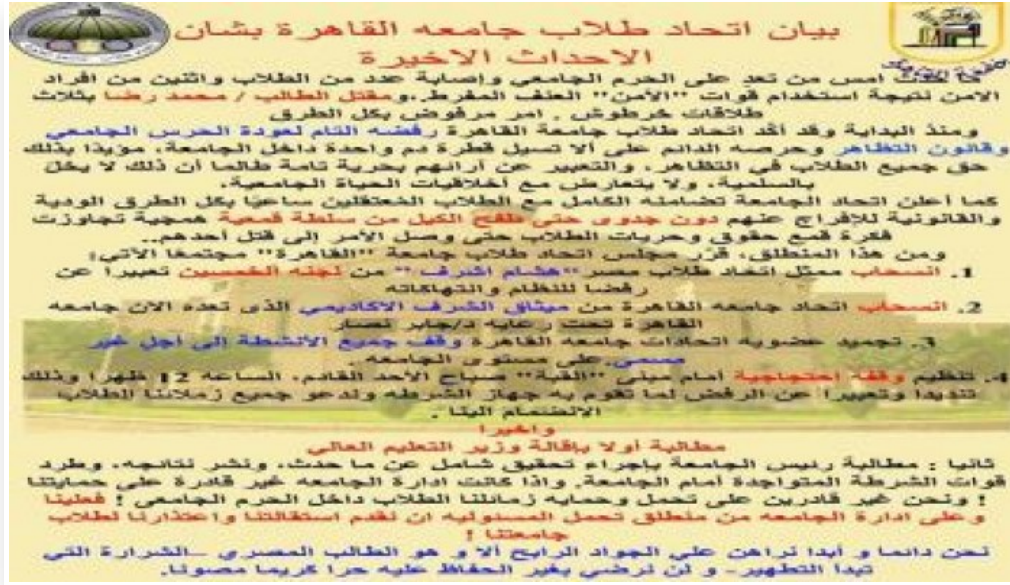 بيان اتحاد طلاب جامعه القاهرة بشان
الاحداث الاخيرة
امس من تعد على الحرم الجامعي وإصابة عدد من الطلاب واثنين من افراد
الامن نتيجة استخدام قوات "الأمن" العنف المفرط.ومقتل الطالب / محمد رضا بثلاث
طلاقات خرطوش . امر مرفوض بكل الطرق
ومنذ البداية وقد أكد اتحاد طلاب جامعة القاهرة رفضه التام لعودة الحرس الجامعي
وقانون التظاهر وحرصه الدائم على ألا تسيل قطرة دم واحدة داخل الجامعة، مؤيدا بذلك
حق جميع الطلاب في التظاهر، والتعبير عن آرائهم بحرية تامة طالما أن ذلك لا يخل
بالسلمية، ولا يتعارض مع أخلاقيات الحياة الجامعية.
كما أعلن اتحاد الجامعة تضامنه الكامل مع الطلاب المعتقلين ساعيا بكل الطرق الودية
والقانونية للإفراج عنهم دون جدوى حتى طفح الكيل من سلطة قمعية همجية تجاوزت
فكرة قمع حقوق وحريات الطلاب حتى وصل الأمر إلى قتل أحدهم..
ومن هذا المنطلق، قرر مجلس اتحاد طلاب جامعة "القاهرة" مجتمعا الآتي:
1. انسحاب ممثل اتحاد طلاب مصر "هشام اشرف" من لجنه الخمسين تعبيرا عن
رفضا للنظام وانتهاكاته
2. انسحاب اتحاد جامعه القاهرة من ميثاق الشرف الاكاديمي الذى تعده الان جامعه
القاهرة تحت رعايه د/جابر نصار
3. تجميد عضويه اتحادات جامعه القاهرة وقف جميع الأنشطة إلى أجل غير
مسمى.على مستوى الجامعه.
4. تنظيم وقفه احتجاجية أمام مبنى "القبة" صباح الأحد القادم، الساعه 12 ظهرا وذلك
تنديدا وتعبيرا عن الرفض لما تقوم به جهاز الشرطه وندعو جميع زملائنا الطلاب
الانضمام الينا .
واخيرا
مطالبة أولا بإقالة وزير التعليم العالي
ثانيا : مطالبة رئيس الجامعة بإجراء تحقيق شامل عن ما حدث، ونشر نتائجه، وطرد
قوات الشرطة المتواجدة أمام الجامعة. واذا كانت ادارة الجامعه غير قادرة على حمايتنا
! ونحن غير قادرين على تحمل وحمايه زملائنا الطلاب داخل الحرم الجامعي ! فعلينا
وعلى ادارة الجامعه من منطلق تحمل المسئوليه ان نقدم استقالتنا واعتذارنا لطلاب
جامعتنا !
نحن دائما و أبدا نراهن علي الجواد الرابح ألا و هو الطالب المصري –الشرارة التي
تبدا التطهير– و لن نرضي بغير الحفاظ عليه حرا كريما مصونا.